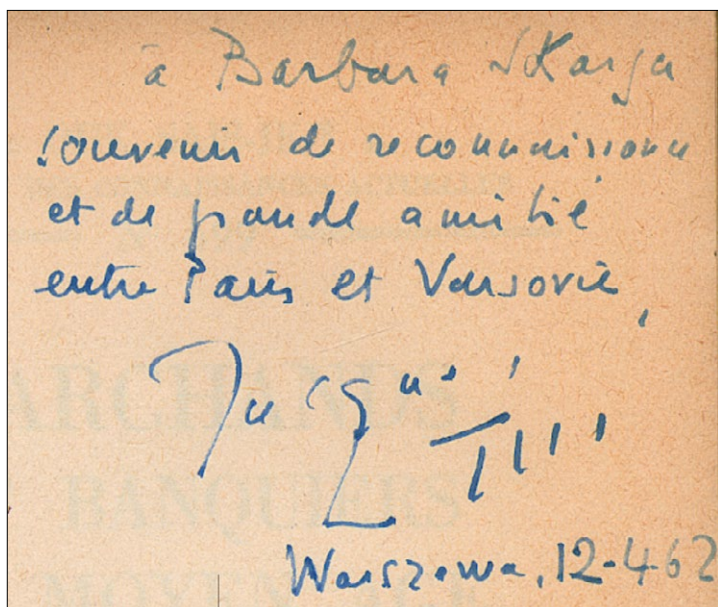 à Barbara Skarga
souvenir de reconnaissance
et de grande amitié
entre Paris et Varsovie,
Jacques
Warszawa, 12-4 62